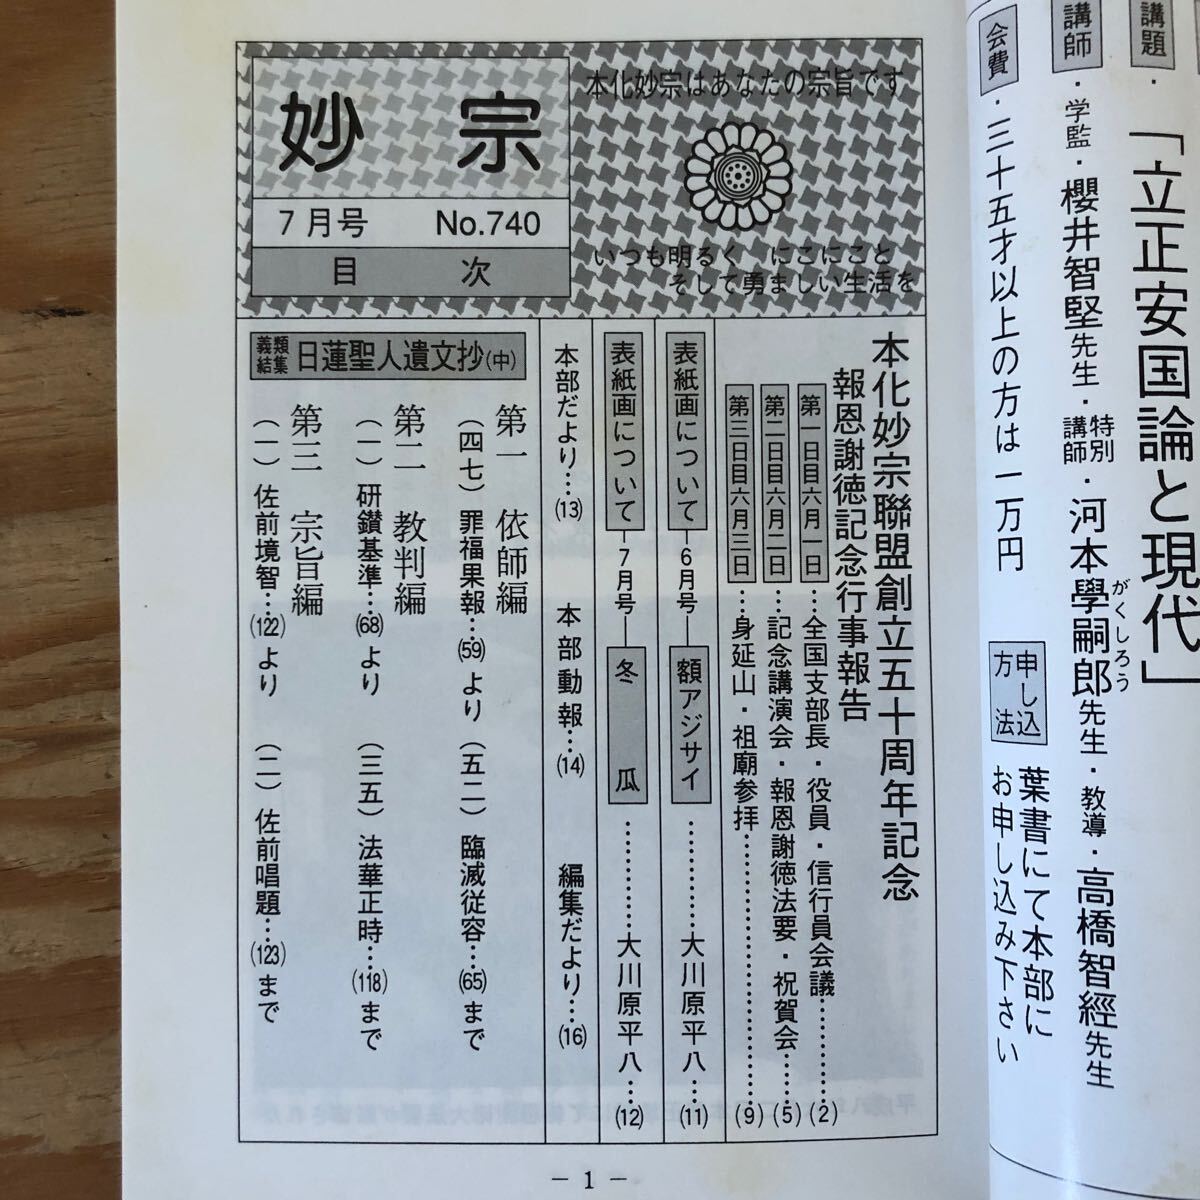 講題
・「立正安国論と現代」
講師
・学監・櫻井智堅先生・特別講師・河本學嗣郎先生・教導・高橋智經先生
がくしろう
会費
・三十五才以上の方は一万円
申し込
方法
葉書にて本部に
お申し込み下さい
本化妙宗はあなたの宗旨です
いつも明るく にこにこと
そして勇ましい生活を
妙 宗
7月号 No.740
目 次
本化妙宗聯盟創立五十周年記念
報恩謝徳記念行事報告
第一日目六月一日…全国支部長・役員・信行員会議………(2)
第二日目六月二日…記念講演会・報恩謝徳法要・祝賀会…(5)
第三日目六月三日…身延山・祖廟参拝………………(9)
表紙画について―6月号―額アジサイ…………大川原平八…(11)
表紙画について―7月号―冬 瓜…………大川原平八…(12)
本部だより…(13) 本部動報…(14) 編集だより…(16)
類集
義結
日蓮聖人遺文抄(中)
第一 依師編
(四七)罪福果報…(59)より (五二)臨滅従容…(65)まで
第二 教判編
(一)研鑚基準…(68)より (三五)法華正時…(118)まで
第三 宗旨編
(一)佐前境智…(122)より (二)佐前唱題…(123)まで
― 1 ―